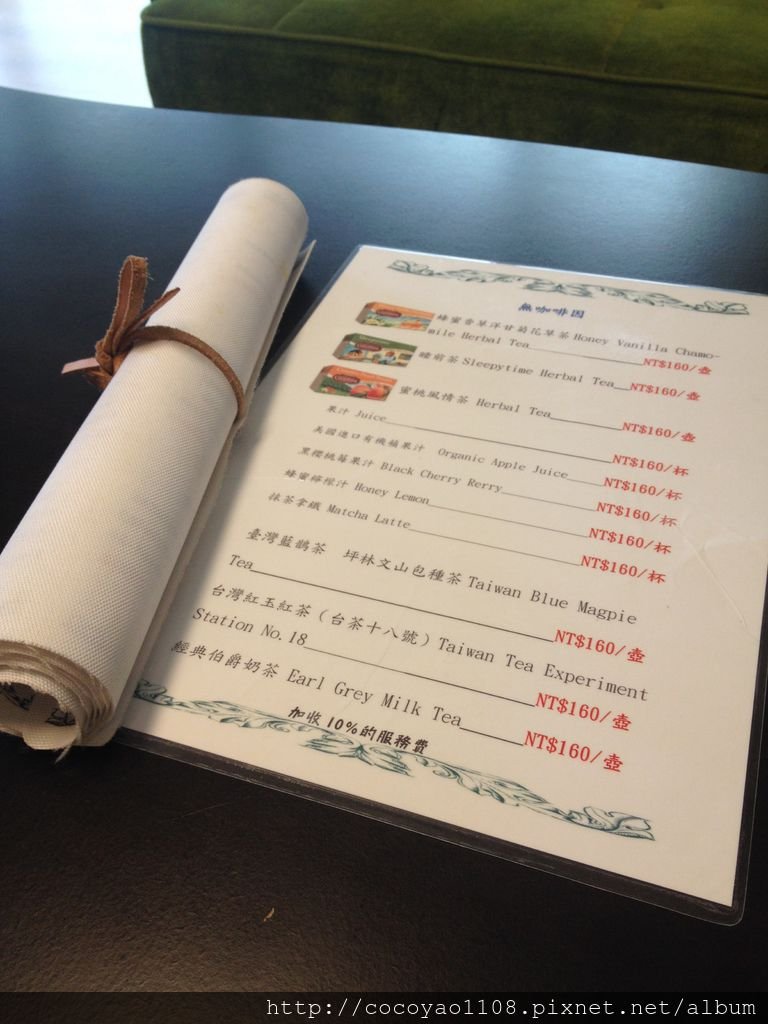 無咖啡因
蜂蜜香草洋甘菊花草茶 Honey Vanilla Chamo-
mile Herbal Tea NT$160/壺
睡前茶 Sleepytime Herbal Tea NT$160/壺
蜜桃風情茶 Herbal Tea NT$160/壺
果汁 Juice NT$160/杯
美國進口有機蘋果汁 Organic Apple Juice NT$160/杯
黑櫻桃莓果汁 Black Cherry Rerry NT$160/杯
蜂蜜檸檬汁 Honey Lemon NT$160/杯
抹茶拿鐵 Matcha Latte NT$160/杯
臺灣藍鵲茶 坪林文山包種茶 Taiwan Blue Magpie
Tea NT$160/壺
台灣紅玉紅茶（台茶十八號）Taiwan Tea Experiment
Station No.18 NT$160/壺
經典伯爵奶茶 Earl Grey Milk Tea NT$160/壺
加收10%的服務費
http://cocoyao1108.pixnet.net/album